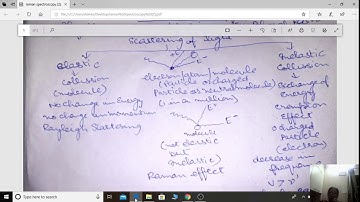 raman spectroscopy (2)
Scattering of Light
Elastic
Collission
(molecule)
No change in Energy
no change in momentum
Rayleigh Scattering
electron/atom/molecule
(Particle or charged
Particle or neutral molecule)
(1 in a million)
E-
E-
molecule
(not elastic
but
inelastic)
Raman effect
Inelastic
Collission
Exchange of
Energy
Compton
Effect
charged
Particle
(electron)
decrease in
frequency
Type here to search